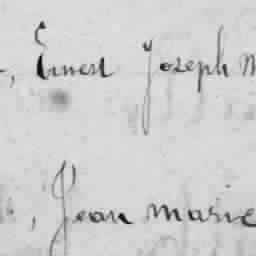 , Ernest Joseph M
, Jean Marie